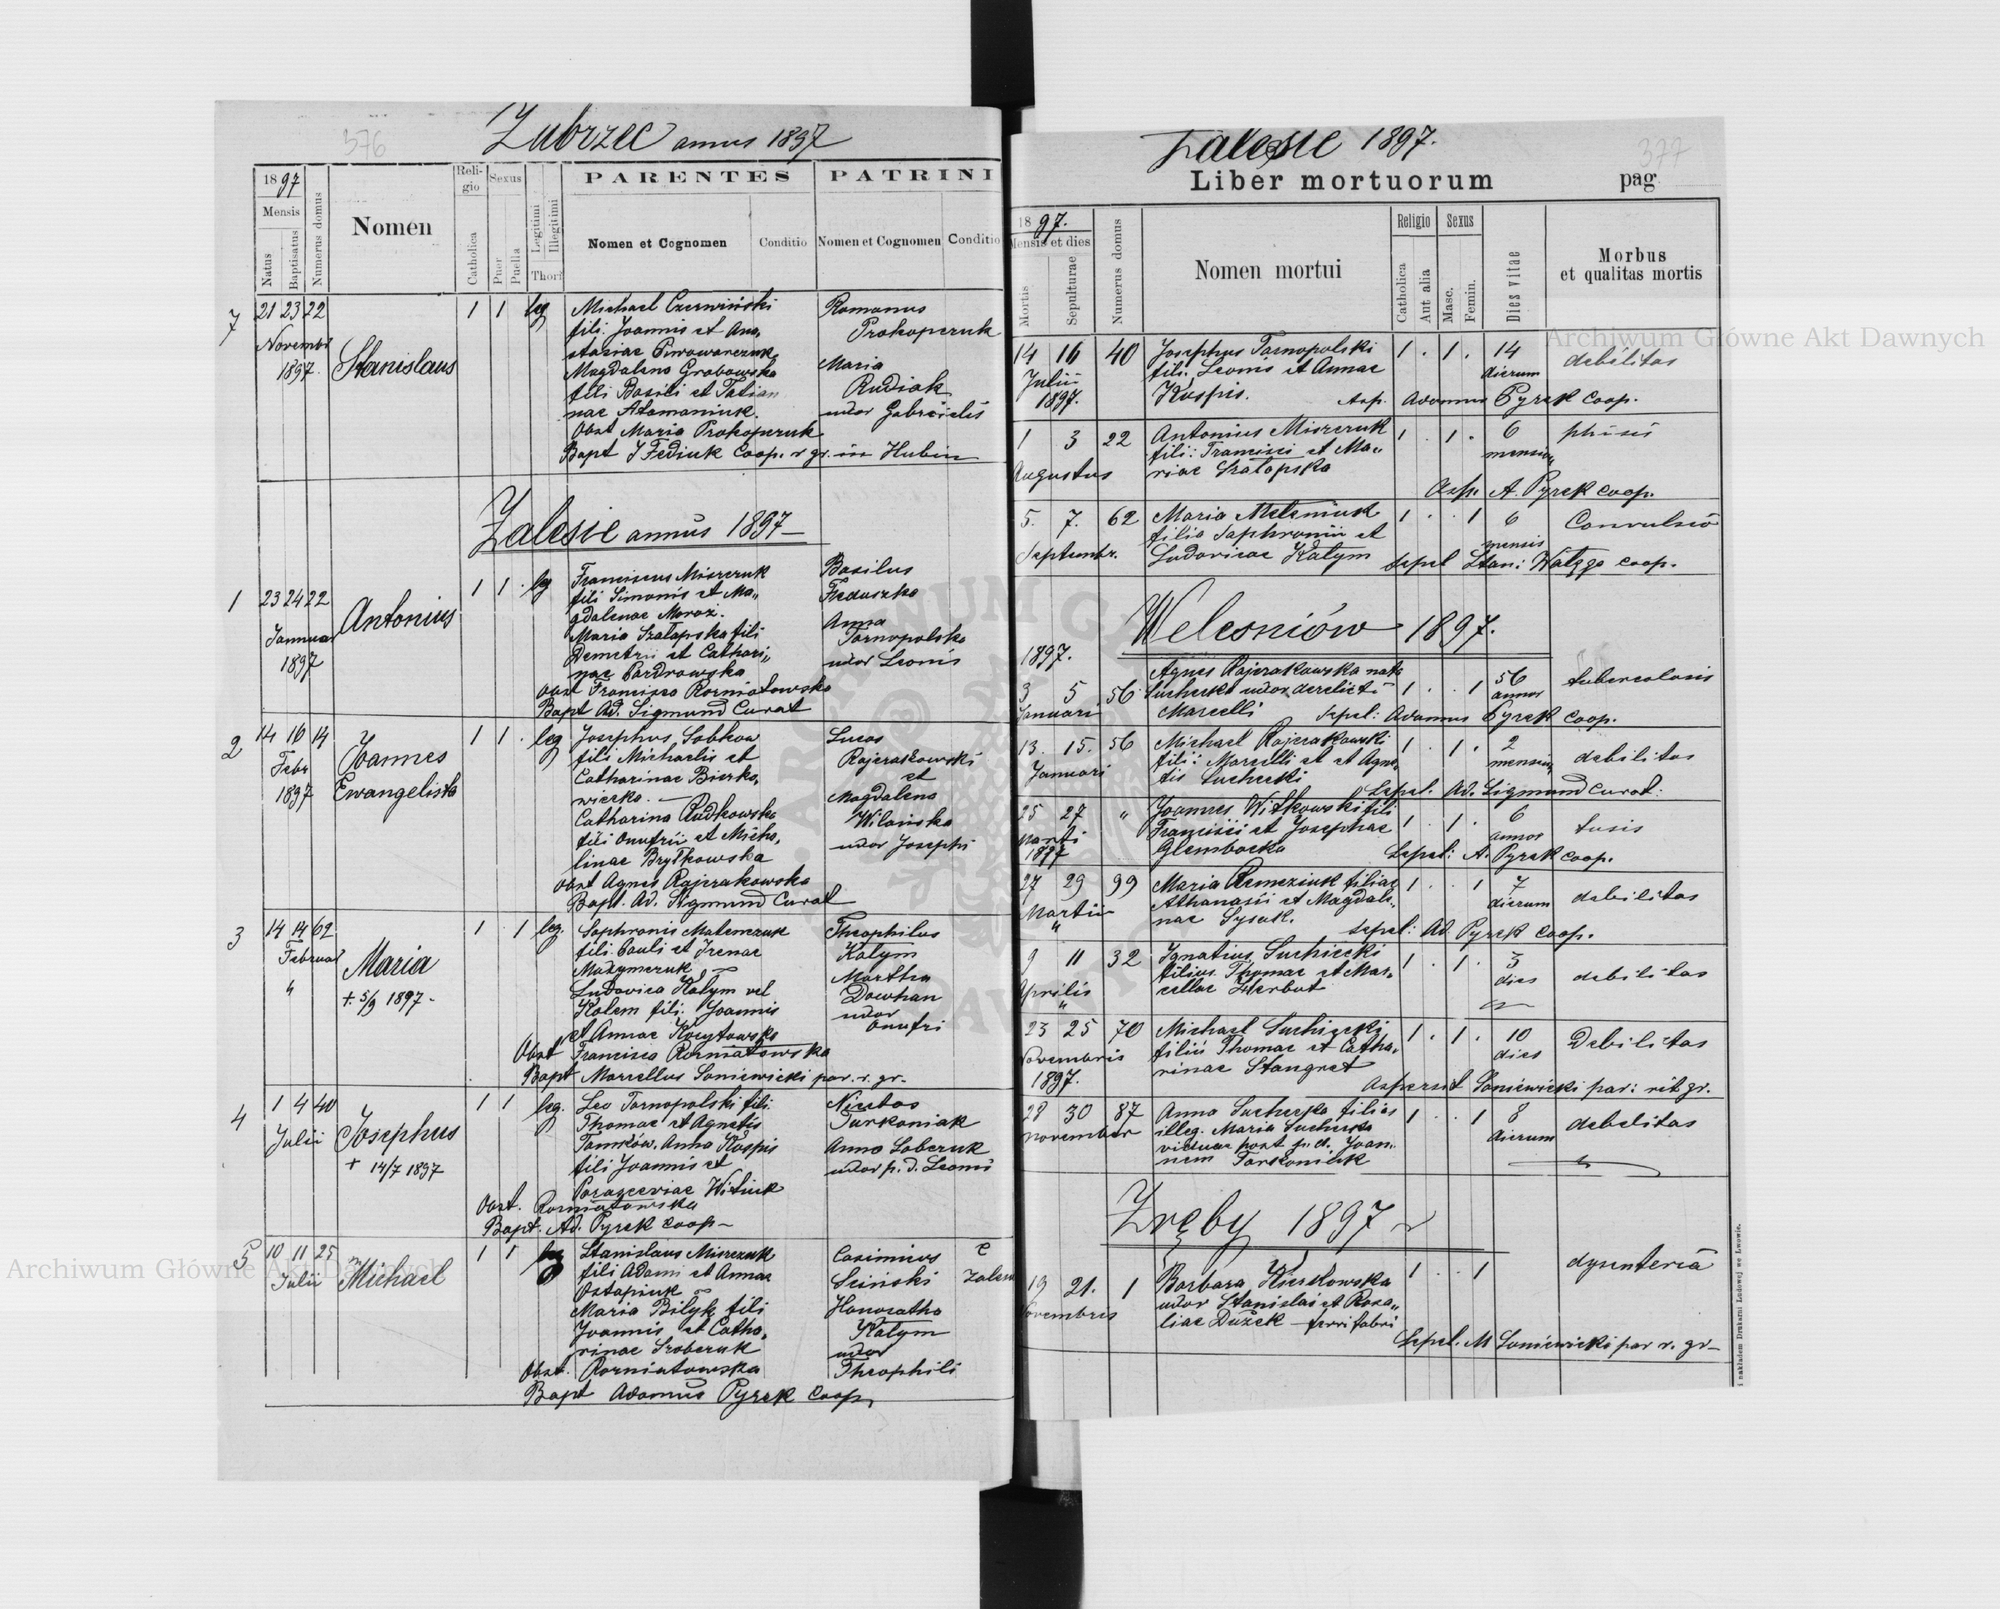 376
Zubrzec annus 1897
1897
Mensis
Natus
Baptisatus
Numerus domus
Nomen
Religio
Catholica
Sexus
Puer
Puella
Legitimi
Illegitimi
Thori
PARENTES
Nomen et Cognomen
Conditio
PATRINI
Nomen et Cognomen
Conditio
7
21 23 22
Novembr
1897
Stanislaus
1 1 leg
Michael Czerwiński
fili. Joannis et Ana,
stasiae
Magdalena Grabowska
fili Basili et Tatian
nae Atamaniuk.
Obst Maria Prokopczuk
Bapt J Fediuk Coop. r gr. in Hubin
Romanus
Prokopczuk
Maria
Rudiak
uxor Gabrielis
Zalesie annus 1897
1
23 24 22
Januar
1897
Antonius
1 1 leg
Franciscus Misrczuk
fili Simonis et Ma„
gdalenae Moroz.
Maria Szatapska fili
Demetrii et Cathari„
nae
Obst Francisca Rozniatowska
Bapt Ad. Sigmund Curat
Basilus
Feduszko
Anna
Tarnopolska
uxor Leonis
2
14 16 14
Febr
1897
Joannes
Ewangelista
1 1 leg
Josephus Sobkow
fili Michaelis et
Catharinae Bierko,
wiecka.
Catharina Rudkowska
fili Onufrii et Micha,
linae Brytkowska
Obst Agnes Rajczakowska
Bapt. Ad. Sigmund Curat
Lucas
Rajczakowski
et
Magdalena
Wilańska
uxor Josephi
3
14 14 62
Februar
"
Maria
+ 5/9 1897
1 1 leg.
Sophronis Matemczuk
fili. Pauli et Irenae
Maxymczuk
Ludovica Kalym vel
Kolem fili: Joannis
et Annae Kocytowska
Obst Francisca Rozniatowska
Bapt Marcellus Soniewicki par. r. gr.
Theophilus
Kalym
Martha
Dowhan
uxor
Onufri
4
1 4 40
Julii
Josephus
+ 14/7 1897
1 1 leg.
Leo Tarnopolski fili.
Thomae et Agnetis
Tomków. Anna Kuspis
fili Joannis et
Parasceviae Witiuk
Obst. Rozniatowska
Bapt. Ad. Pyrek coop
Nicolas
Turkoniak
Anna
uxor p. d. Leonis
5
10 11 25
Julii
Michael
1 1 leg
Stanislaus Misrczuk
fili Adami et Annae
Ostapiuk
Maria Bilyk fili
Joannis et Catha,
rinae
Obst. Rozniatowska
Bapt Adamus Pyrek coop
Casimirus
Honoratha
Kalym
uxor
Theophili
377
Zalesie 1897.
Liber mortuorum
pag
1897.
Mensis et dies
Mortis
Sepulturae
Numerus domus
Nomen mortui
Religio
Catholica
Aut alia
Sexus
Masc.
Femin.
Dies vitae
Morbus
et qualitas mortis
14 16 40
Julii
1897.
Josephus Tarnopolski
fili. Leonis et Annae
Kuspis.
1 . 1 .
14
dierum
debilitas
Asp. Adamus Pyrek coop.
1 3 22
Augustus
Antonius Misrczuk
fili: Francisci et Ma„
riae Szatapska
1 . 1 .
6
mensium
phisis
Asp. A. Pyrek coop.
5. 7. 62
Septembr.
Maria
filia Saphronii et
Ludovicae Kalym
1 . . 1
6
mensis
Convulsio
Sepel Stan: Watzga coop.
Welesniów 1897.
1897.
3 5 56
Januari
Agnes Rajczakowska nata
Suchecka uxor derelicti
Marcelli
1 . . 1
56
annos
tuberculosis
Sepel: Adamus Pyrek coop.
13. 15. 56
Januari
Michael Rajczakowski
fili: Marcelli et et Agne,
tis Suchecki
1 . 1 .
2
mensium
debilitas
Sepel. Ad. Sigmund curat.
25 27 "
Marti
1897
Joannes Witkowski fili
Francisci et Josephae
Glembocka
1 . 1 .
6
annos
tusis
Sepel: A. Pyrek coop.
27 29 99
Martii
"
Maria Remeziuk filiae
Athanasii et Magdale„
nae Sysak.
1 . . 1
7
dierum
debilitas
Sepel: Ad Pyrek coop.
9 11 32
Aprilis
"
Ignatius Suchiecki
filius Thomae et Mar,
cellae Herbut
1 . 1 .
3
dies
debilitas
23 25 70
Novembris
1897.
Michael Suchiecki
filii Thomae et Catha,
rinae Stangret
1 . 1 .
10
dies
Debilitas
Aspersit Soniewicki par: rit gr.
28 30 87
November
Anna Suchecka filia
illeg. Maria Suchecka
viduae post p. d. Joan„
nem Tarkoniak
1 . . 1
8
dierum
debelitas
Zręby 1897
19 21. 1
Novembris
Barbara Kierkowska
uxor Stanislai et Rosa„
liae Duzek ferrifabri
1 . . 1
dysenteria
Sepel. M Soniewicki par r. gr
i nakładem Drukarni Ludowej we Lwowie.
Archiwum Główne Akt Dawnych
Archiwum Główne Akt Dawnych